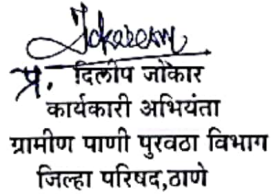 प्र. दिलीप जोकार
कार्यकारी अभियंता
ग्रामीण पाणी पुरवठा विभाग
जिल्हा परिषद,ठाणे